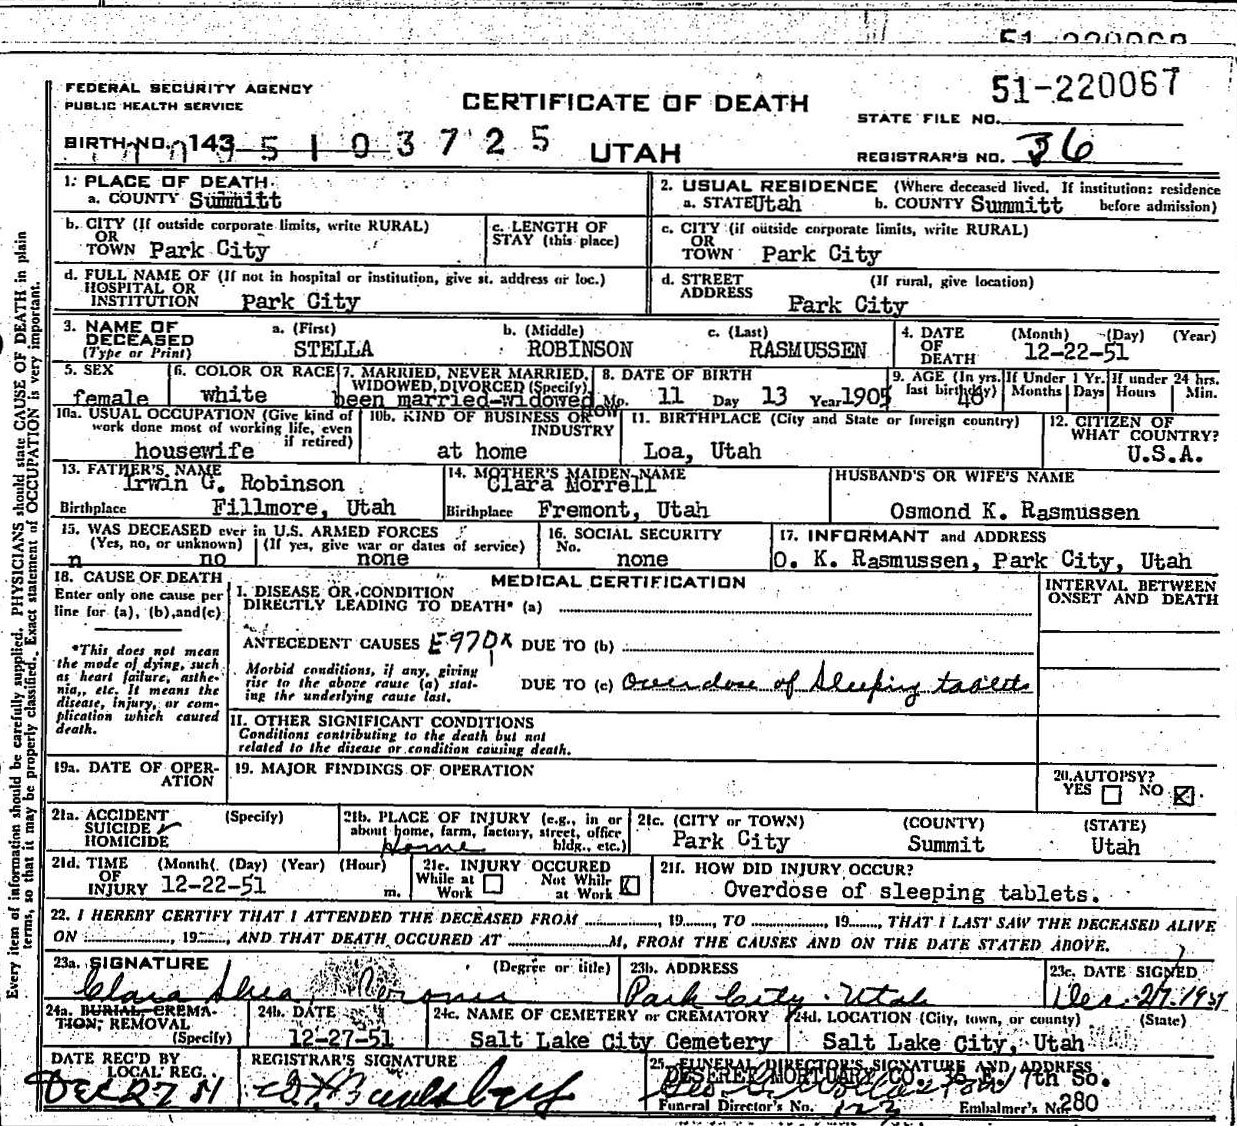 51-220068
FEDERAL SECURITY AGENCY
PUBLIC HEALTH SERVICE
CERTIFICATE OF DEATH
51-220067
STATE FILE NO.
BIRTH NO. 143 5 1 0 3 7 2 5
UTAH
REGISTRAR'S NO. 36
Every item of information should be carefully supplied. PHYSICIANS should state CAUSE OF DEATH in plain
terms, so that it may be properly classified. Exact statement of OCCUPATION is very important.
1. PLACE OF DEATH
a. COUNTY Summitt
2. USUAL RESIDENCE (Where deceased lived. If institution: residence
a. STATE Utah b. COUNTY Summitt before admission)
b. CITY (If outside corporate limits, write RURAL)
OR
TOWN Park City
c. LENGTH OF
STAY (this place)
c. CITY (if outside corporate limits, write RURAL)
OR
TOWN Park City
d. FULL NAME OF (If not in hospital or institution, give st. address or loc.)
HOSPITAL OR
INSTITUTION Park City
d. STREET (If rural, give location)
ADDRESS
Park City
3. NAME OF
DECEASED
(Type or Print)
a. (First) b. (Middle) c. (Last)
STELLA ROBINSON RASMUSSEN
4. DATE (Month) (Day) (Year)
OF
DEATH 12-22-51
5. SEX
female
6. COLOR OR RACE
white
7. MARRIED, NEVER MARRIED,
WIDOWED, DIVORCED (Specify)
been married-widowed now
8. DATE OF BIRTH
Mo. 11 Day 13 Year 1905
9. AGE (In yrs.
last birthday) 46
If Under 1 Yr.
Months Days
If under 24 hrs.
Hours Min.
10a. USUAL OCCUPATION (Give kind of
work done most of working life, even
if retired)
housewife
10b. KIND OF BUSINESS OR
INDUSTRY
at home
11. BIRTHPLACE (City and State or foreign country)
Loa, Utah
12. CITIZEN OF
WHAT COUNTRY?
U.S.A.
13. FATHER'S NAME
Irwin G. Robinson
Birthplace Fillmore, Utah
14. MOTHER'S MAIDEN NAME
Clara Morrell
Birthplace Fremont, Utah
HUSBAND'S OR WIFE'S NAME
Osmond K. Rasmussen
15. WAS DECEASED ever in U.S. ARMED FORCES
(Yes, no, or unknown) (If yes, give war or dates of service)
n no none
16. SOCIAL SECURITY
No.
none
17. INFORMANT and ADDRESS
O. K. Rasmussen, Park City, Utah
18. CAUSE OF DEATH
Enter only one cause per
line for (a), (b), and (c)
*This does not mean
the mode of dying, such
as heart failure, asthe-
nia, etc. It means the
disease, injury, or com-
plication which caused
death.
MEDICAL CERTIFICATION
INTERVAL BETWEEN
ONSET AND DEATH
I. DISEASE OR CONDITION
DIRECTLY LEADING TO DEATH* (a)
ANTECEDENT CAUSES E970X DUE TO (b)
Morbid conditions, if any, giving
rise to the above cause (a) stat-
ing the underlying cause last.
DUE TO (c) Overdose of Sleeping tablets
II. OTHER SIGNIFICANT CONDITIONS
Conditions contributing to the death but not
related to the disease or condition causing death.
19a. DATE OF OPER-
ATION
19. MAJOR FINDINGS OF OPERATION
20. AUTOPSY?
YES NO
21a. ACCIDENT (Specify)
SUICIDE ✓
HOMICIDE
21b. PLACE OF INJURY (e.g., in or
about home, farm, factory, street, office
bldg., etc.)
Home
21c. (CITY or TOWN) (COUNTY) (STATE)
Park City Summit Utah
21d. TIME (Month) (Day) (Year) (Hour)
OF
INJURY 12-22-51 m.
21e. INJURY OCCURED
While at Work Not While at Work
21f. HOW DID INJURY OCCUR?
Overdose of sleeping tablets.
22. I HEREBY CERTIFY THAT I ATTENDED THE DECEASED FROM , 19 TO , 19 , THAT I LAST SAW THE DECEASED ALIVE
ON , 19 , AND THAT DEATH OCCURED AT M, FROM THE CAUSES AND ON THE DATE STATED ABOVE.
23a. SIGNATURE (Degree or title)
Clara Shea, Coroner
23b. ADDRESS
Park City Utah
23c. DATE SIGNED
Dec. 27, 1951
24a. BURIAL, CREMA-
TION, REMOVAL
(Specify)
24b. DATE
12-27-51
24c. NAME OF CEMETERY or CREMATORY
Salt Lake City Cemetery
24d. LOCATION (City, town, or county) (State)
Salt Lake City, Utah
DATE REC'D BY
LOCAL REG.
DEC 27 51
REGISTRAR'S SIGNATURE
25. FUNERAL DIRECTOR'S SIGNATURE AND ADDRESS
DESERET MORTUARY CO. 36 E. 7th So.
Funeral Director's No. 122 Embalmer's No. 280